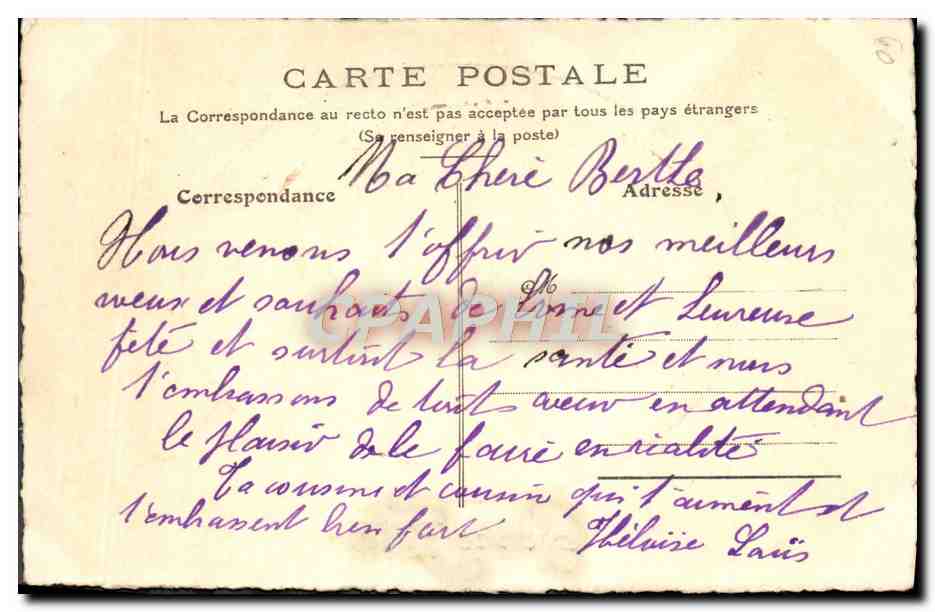 CARTE POSTALE
La Correspondance au recto n'est pas acceptée par tous les pays étrangers
(Se renseigner à la poste)
Ma Cheré Berthe,
Correspondance Adresse
Nous venons t'offrir nos meilleurs
M
veux et souhaits de bonne et heureuse
CPAPHIL
fête et surtout la santé et nous
t'embrassons de tout cœur en attendant
le plaisir de le faire en rialité
Ta cousine et cousin qui t'aiment et
t'embrassent bien fort
Héloïse Laüs
60